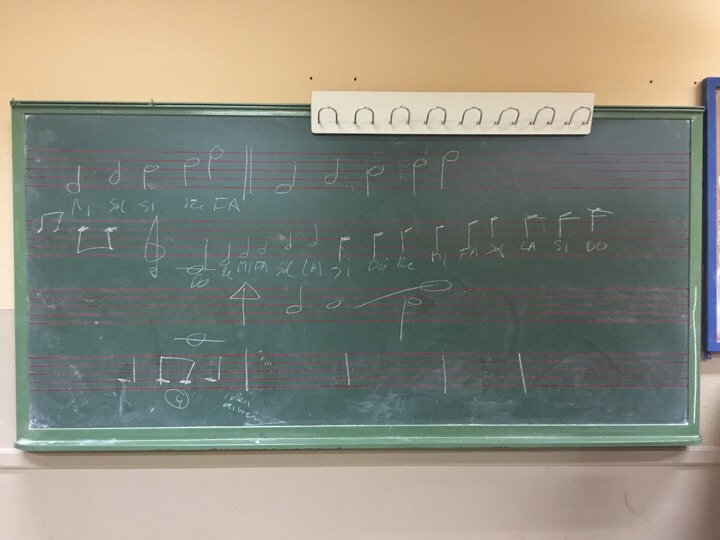 MI Sol SI Re FA
Do Re MI FA Sol LA SI Do Re MI FA Sol LA SI DO
4